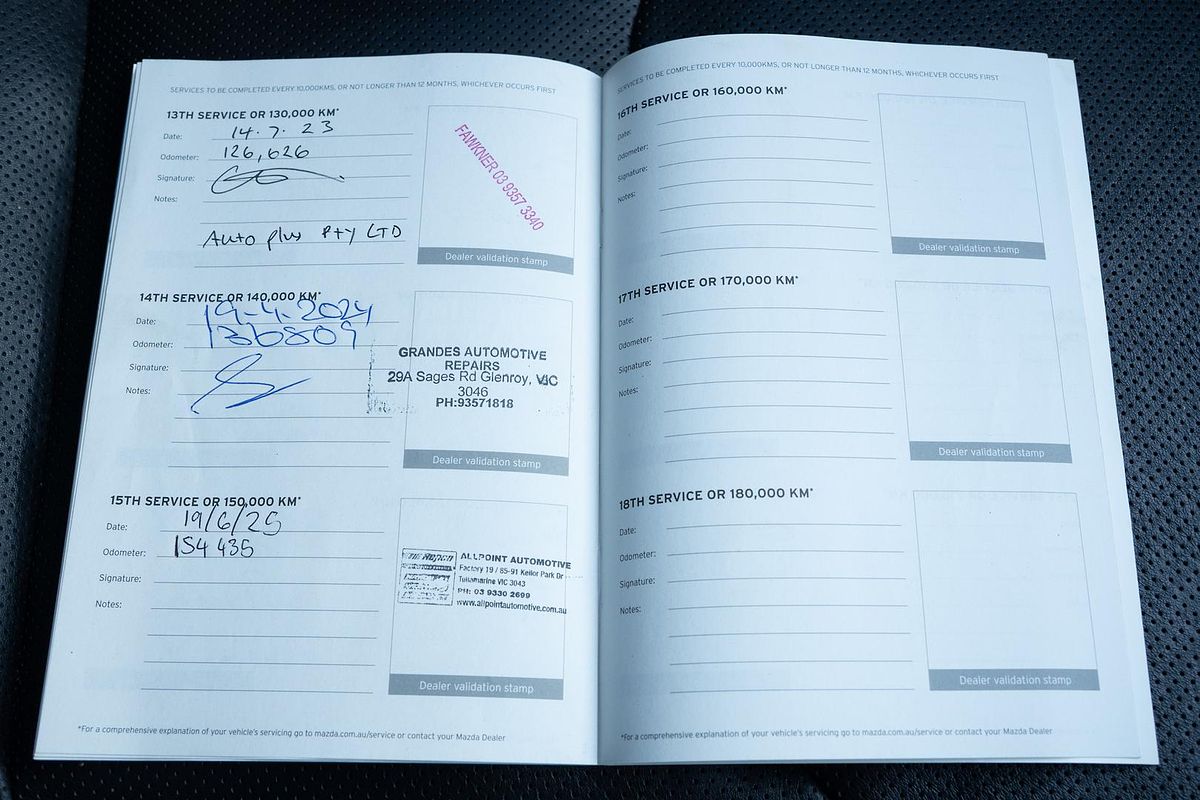 SERVICES TO BE COMPLETED EVERY 10,000KMS, OR NOT LONGER THAN 12 MONTHS, WHICHEVER OCCURS FIRST
13TH SERVICE OR 130,000 KM*
Date: 14.7.23
Odometer: 126,626
Signature:
Notes:
Auto plus Pty LTD
FAWKNER 03 9357 3340
Dealer validation stamp
14TH SERVICE OR 140,000 KM*
Date: 19-4-2024
Odometer: 136809
Signature:
Notes:
GRANDES AUTOMOTIVE
REPAIRS
29A Sages Rd Glenroy, VIC
3046
PH:93571818
Dealer validation stamp
15TH SERVICE OR 150,000 KM*
Date: 19/6/25
Odometer: 154 435
Signature:
Notes:
ALLPOINT AUTOMOTIVE
Factory 19 / 85-91 Keilor Park Dr
Tullamarine VIC 3043
PH: 03 9330 2699
www.allpointautomotive.com.au
Dealer validation stamp
*For a comprehensive explanation of your vehicle's servicing go to mazda.com.au/service or contact your Mazda Dealer
SERVICES TO BE COMPLETED EVERY 10,000KMS, OR NOT LONGER THAN 12 MONTHS, WHICHEVER OCCURS FIRST
16TH SERVICE OR 160,000 KM*
Date:
Odometer:
Signature:
Notes:
Dealer validation stamp
17TH SERVICE OR 170,000 KM*
Date:
Odometer:
Signature:
Notes:
Dealer validation stamp
18TH SERVICE OR 180,000 KM*
Date:
Odometer:
Signature:
Notes:
Dealer validation stamp
*For a comprehensive explanation of your vehicle's servicing go to mazda.com.au/service or contact your Mazda Dealer